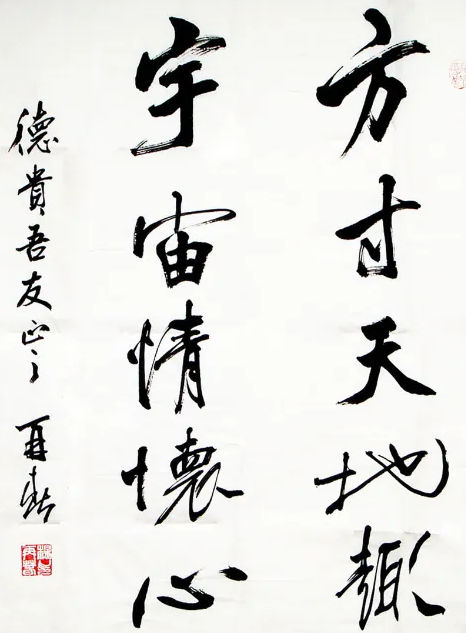 方寸天地趣
宇宙情懷心
德貴吾友正之 再春